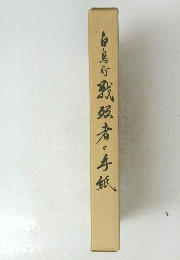 白鳥町戦没者の手紙